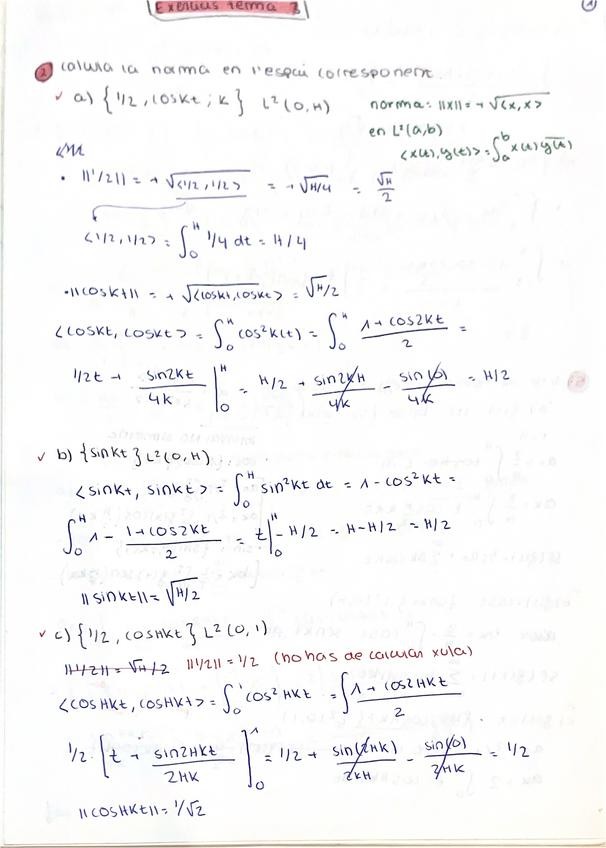 Exercicis tema 3
1
2 calcula la norma en l'espai corresponent.
✓ a) {1/2, cosKt; K} L²(0,H) norma: ||x|| = +√<x,x>
en L²(a,b)
<x(t),y(t)> = ∫ₐᵇ x(t) y(t)
• ||1/2|| = +√<1/2,1/2> = +√H/4 = √H/2
<1/2,1/2> = ∫₀ᴴ 1/4 dt = H/4
• ||cosKt|| = +√<cosKt,cosKt> = √H/2
<cosKt, cosKt> = ∫₀ᴴ cos²K(t) = ∫₀ᴴ 1+cos2Kt/2 =
1/2t + sin2Kt/4K |₀ᴴ = H/2 + sin2KH/4K - sin(0)/4K = H/2
✓ b) {sinKt} L²(0,H)
<sinKt, sinKt> = ∫₀ᴴ sin²Kt dt = 1-cos²Kt =
∫₀ᴴ 1 - 1+cos2Kt/2 = t|₀ᴴ - H/2 = H-H/2 = H/2
||sinKt|| = √H/2
✓ c) {1/2, cosHKt} L²(0,1)
||1/2|| = √H/2 ||1/2|| = 1/2 (ho has de calcular xula)
<cosHKt, cosHKt> = ∫₀¹ cos²HKt = ∫ 1+cos2HKt/2
1/2·[t + sin2HKt/2HK]₀¹ = 1/2 + sin(2HK)/2KH - sin(0)/2HK = 1/2
||cosHKt|| = 1/√2